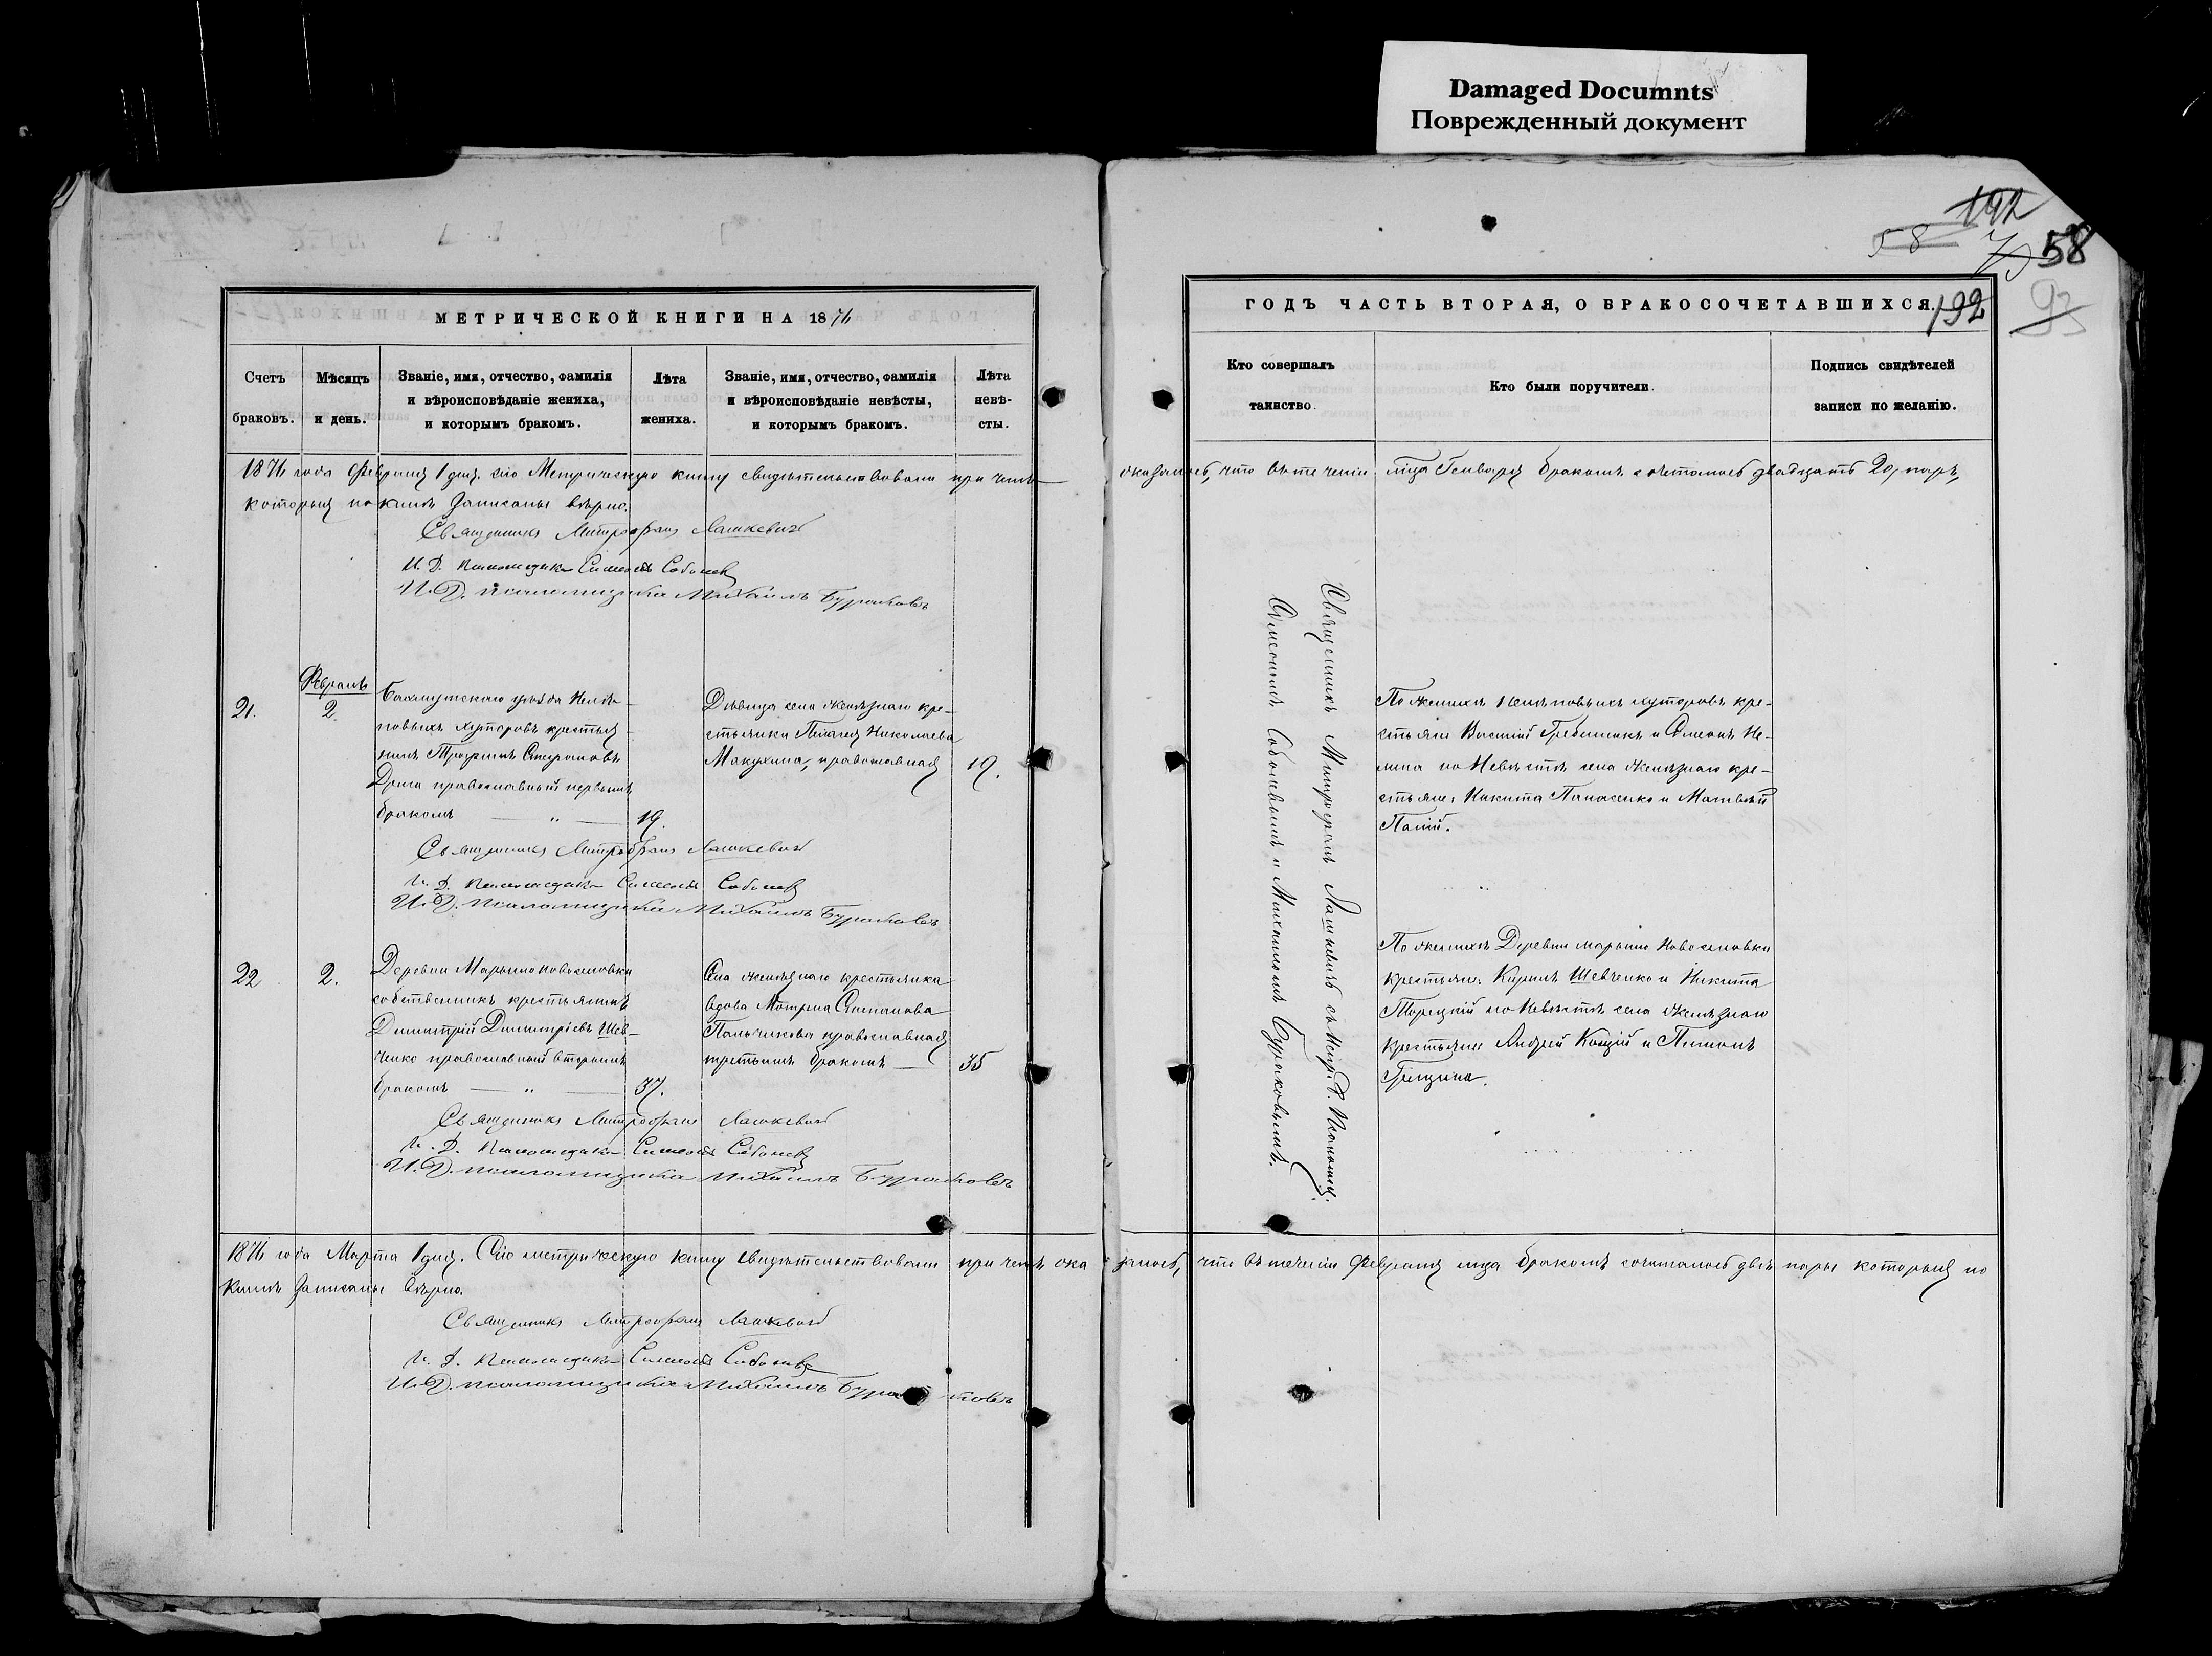 Damaged Documnts
Поврежденный документ
192
58
75 58
93
МЕТРИЧЕСКОЙ КНИГИ НА 1876
ГОДЪ ЧАСТЬ ВТОРАЯ, О БРАКОСОЧЕТАВШИХСЯ.
192
Счетъ браковъ.
Мѣсяцъ и день.
Званіе, имя, отчество, фамилія
и вѣроисповѣданіе жениха,
и которымъ бракомъ.
Лѣта
жениха.
Званіе, имя, отчество, фамилія
и вѣроисповѣданіе невѣсты,
и которымъ бракомъ.
Лѣта
невѣ-
сты.
Кто совершалъ
таинство.
Кто были поручители.
Подпись свидѣтелей
записи по желанію.
1876 года Февраля 1 дня. сію Метрическую книгу свидѣтельствовали при чемъ оказалось, что въ теченіи мца Генваря бракомъ сочеталось двадцать 20, паръ,
которыя по книгѣ записаны вѣрно.
Священникъ Митрофанъ Лашкевичъ
И. Д. Псаломщика Симеонъ Соболевъ
И. Д. псаломщика Михаилъ Бураковъ
Февраль
21.
2
Бахмутскаго уѣзда
повыхъ хуторовъ крестья
нинъ Трофимъ Стефановъ
Дрига православный первымъ
бракомъ — „ —
19.
Дѣвица села Желѣзнаго кре-
стьянка Пелагея Николаева
Макухина, православная
19.
По женихѣ хуторовъ кре-
стьяне Василій Гребеникъ и Симеонъ Не-
липа по Невѣстѣ села Желѣзнаго кре-
стьяне: Никита Панасенко и Матвѣй
Палій.
Священникъ Митрофанъ Лашкевичъ
И. Д. Псаломщика Симеонъ Соболевъ
И. Д. псаломщика Михаилъ Бураковъ
22
2.
Деревни Марьино Новоселовки
собственникъ крестьянинъ
Димитрій Димитріевъ Шев-
ченко православный вторымъ
бракомъ — „ —
37.
Села Желѣзнаго крестьянка
вдова Мотрена Степанова
Пальчикова православная
третьимъ бракомъ —
35
По женихѣ Деревни Марьино Новоселовки
крестьяне: Кирилъ Шевченко и Никита
Торецкій по Невѣстѣ села Желѣзнаго
крестьяне: Андрей Коцій и Пименъ
Грищина.
Священникъ Митрофанъ Лашкевичъ
И. Д. Псаломщика Симеонъ Соболевъ
И. Д. псаломщика Михаилъ Бураковъ
Священникъ Митрофанъ Лашкевичъ съ Испр. д. Псаломщ.
Симеономъ Соболевымъ и Михаиломъ Бураковымъ.
1876 года Марта 1 дня. Сію метрическую книгу свидѣтельствовали при чемъ оказалось, что въ теченіи Февраля мца бракомъ сочеталось двѣ пары которыя по
книгѣ записаны вѣрно.
Священникъ Митрофанъ Лашкевичъ
И. Д. Псаломщика Симеонъ Соболевъ
И. Д. псаломщика Михаилъ Бураковъ